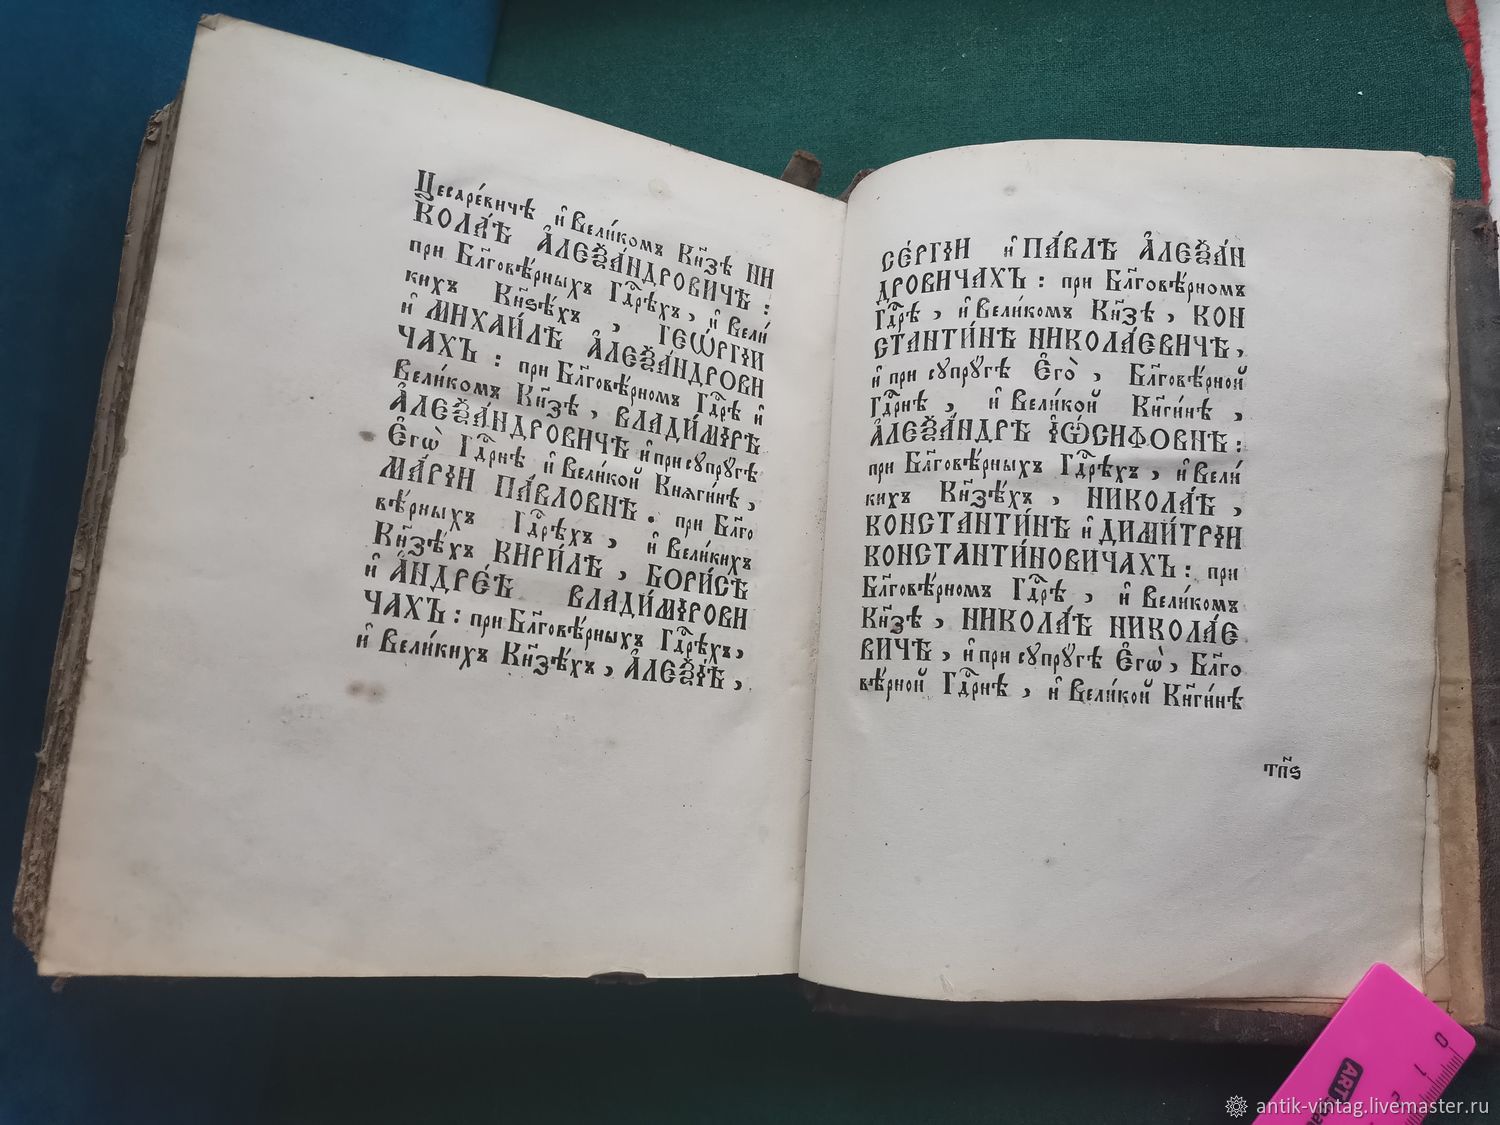 Цесаре́вичѣ и҆ Вели́комъ Кн҃зѣ НИ
КОЛА́Ѣ А҆ЛЕѮА́НДРОВИЧѢ :
при Бл҃гове́рныхъ Гдⷭ҇рѣхъ, и҆ Вели́
кихъ Кн҃ѕѣхъ , ГЕѠ́РГІИ
и҆ МИХАИ́ЛѢ А҆ЛЕѮА́НДРОВИ
ЧАХЪ : при Бл҃говѣ́рномъ Гдⷭ҇рѣ и҆
Вели́комъ Кн҃зѣ , ВЛАДИ́МІРѢ
А҆ЛЕѮА́НДРОВИЧѢ и҆ при сꙋпрꙋгѣ
Е҆гѡ̀ Гдⷭ҇рнѣ и҆ Вели́кой Княги́нѣ ,
МАРІ́И ПА́ВЛОВНѢ . при Бл҃го
вѣ́рныхъ Гдⷭ҇рѣхъ , и҆ Вели́кихъ
Кн҃зѣхъ КИРИ́ЛѢ , БОРИ́СѢ
и҆ А҆НДРЕ́Ѣ ВЛАДИ́МІРОВИ
ЧАХЪ : при Бл҃говѣ́рныхъ Гдⷭ҇рѣхъ,
и҆ Вели́кихъ Кн҃зѣ́хъ , А҆ЛЕѮІ́Ѣ ,
СЕ́РГІИ и҆ ПА́ВЛѢ А҆ЛЕѮА́Н
ДРОВИЧАХЪ : при Бл҃говѣ́рномъ
Гдⷭ҇рѣ , и҆ Вели́комъ Кн҃зѣ , КОН
СТАНТИ́НѢ НИКОЛА́ЕВИЧѢ ,
и҆ при сꙋпрꙋ́гѣ Е҆го̀ , Бл҃говѣ́рной
Гдⷭ҇рнѣ , и҆ Вели́кой Кн҃ги́нѣ ,
А҆ЛЕѮА́НДРѢ І҆Ѡ́СИФОВНѢ :
при Бл҃говѣ́рныхъ Гдⷭ҇рѣхъ , и҆ Вели́
кихъ Кн҃зѣ́хъ , НИКОЛА́Ѣ ,
КОНСТАНТИ́НѢ и҆ ДИМИ́ТРІИ
КОНСТАНТИ́НОВИЧАХЪ : при
Бл҃говѣ́рномъ Гдⷭ҇рѣ , и҆ Вели́комъ
Кн҃зѣ , НИКОЛА́Ѣ НИКОЛА́Е
ВИЧѢ , и҆ при сꙋпрꙋ́гѣ Е҆гѡ̀ , Бл҃го
вѣ́рной Гдⷭ҇рнѣ , и҆ Вели́кой Кн҃ги́нѣ
тп҃ѕ
0 1 2
ART
antik-vintag.livemaster.ru